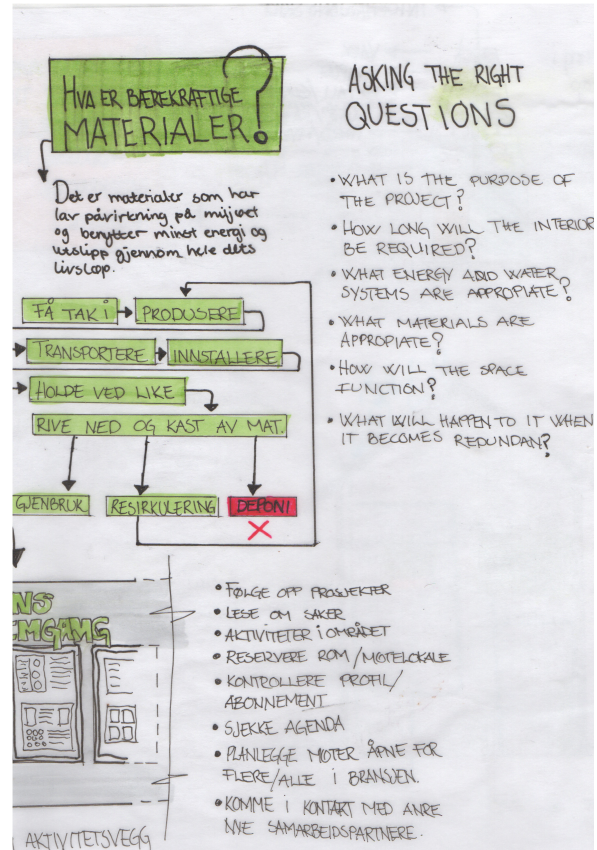 HVA ER BÆREKRAFTIGE
MATERIALER?
Det er materialer som har
lav påvirkning på miljøet
og benytter minst energi og
utslipp gjennom hele dets
livsløp.
FÅ TAK I
PRODUSERE
TRANSPORTERE
INNSTALLERE
HOLDE VED LIKE
RIVE NED OG KAST AV MAT.
GJENBRUK
RESIRKULERING
DEPONI
ASKING THE RIGHT
QUESTIONS
• WHAT IS THE PURPOSE OF
THE PROJECT?
• HOW LONG WILL THE INTERIOR
BE REQUIRED?
• WHAT ENERGY AND WATER
SYSTEMS ARE APPROPIATE?
• WHAT MATERIALS ARE
APPROPIATE?
• HOW WILL THE SPACE
FUNCTION?
• WHAT WILL HAPPEN TO IT WHEN
IT BECOMES REDUNDAN?
NS
EMGANG
AKTIVITETSVEGG
• FØLGE OPP PROSJEKTER
• LESE OM SAKER
• AKTIVITETER I OMRÅDET
• RESERVERE ROM/MØTELOKALE
• KONTROLLERE PROFIL/
ABONNEMENT
• SJEKKE AGENDA
• PLANLEGGE MØTER ÅPNE FOR
FLERE/ALLE I BRANSJEN.
• KOMME I KONTAKT MED ANRE
NYE SAMARBEIDSPARTNERE.